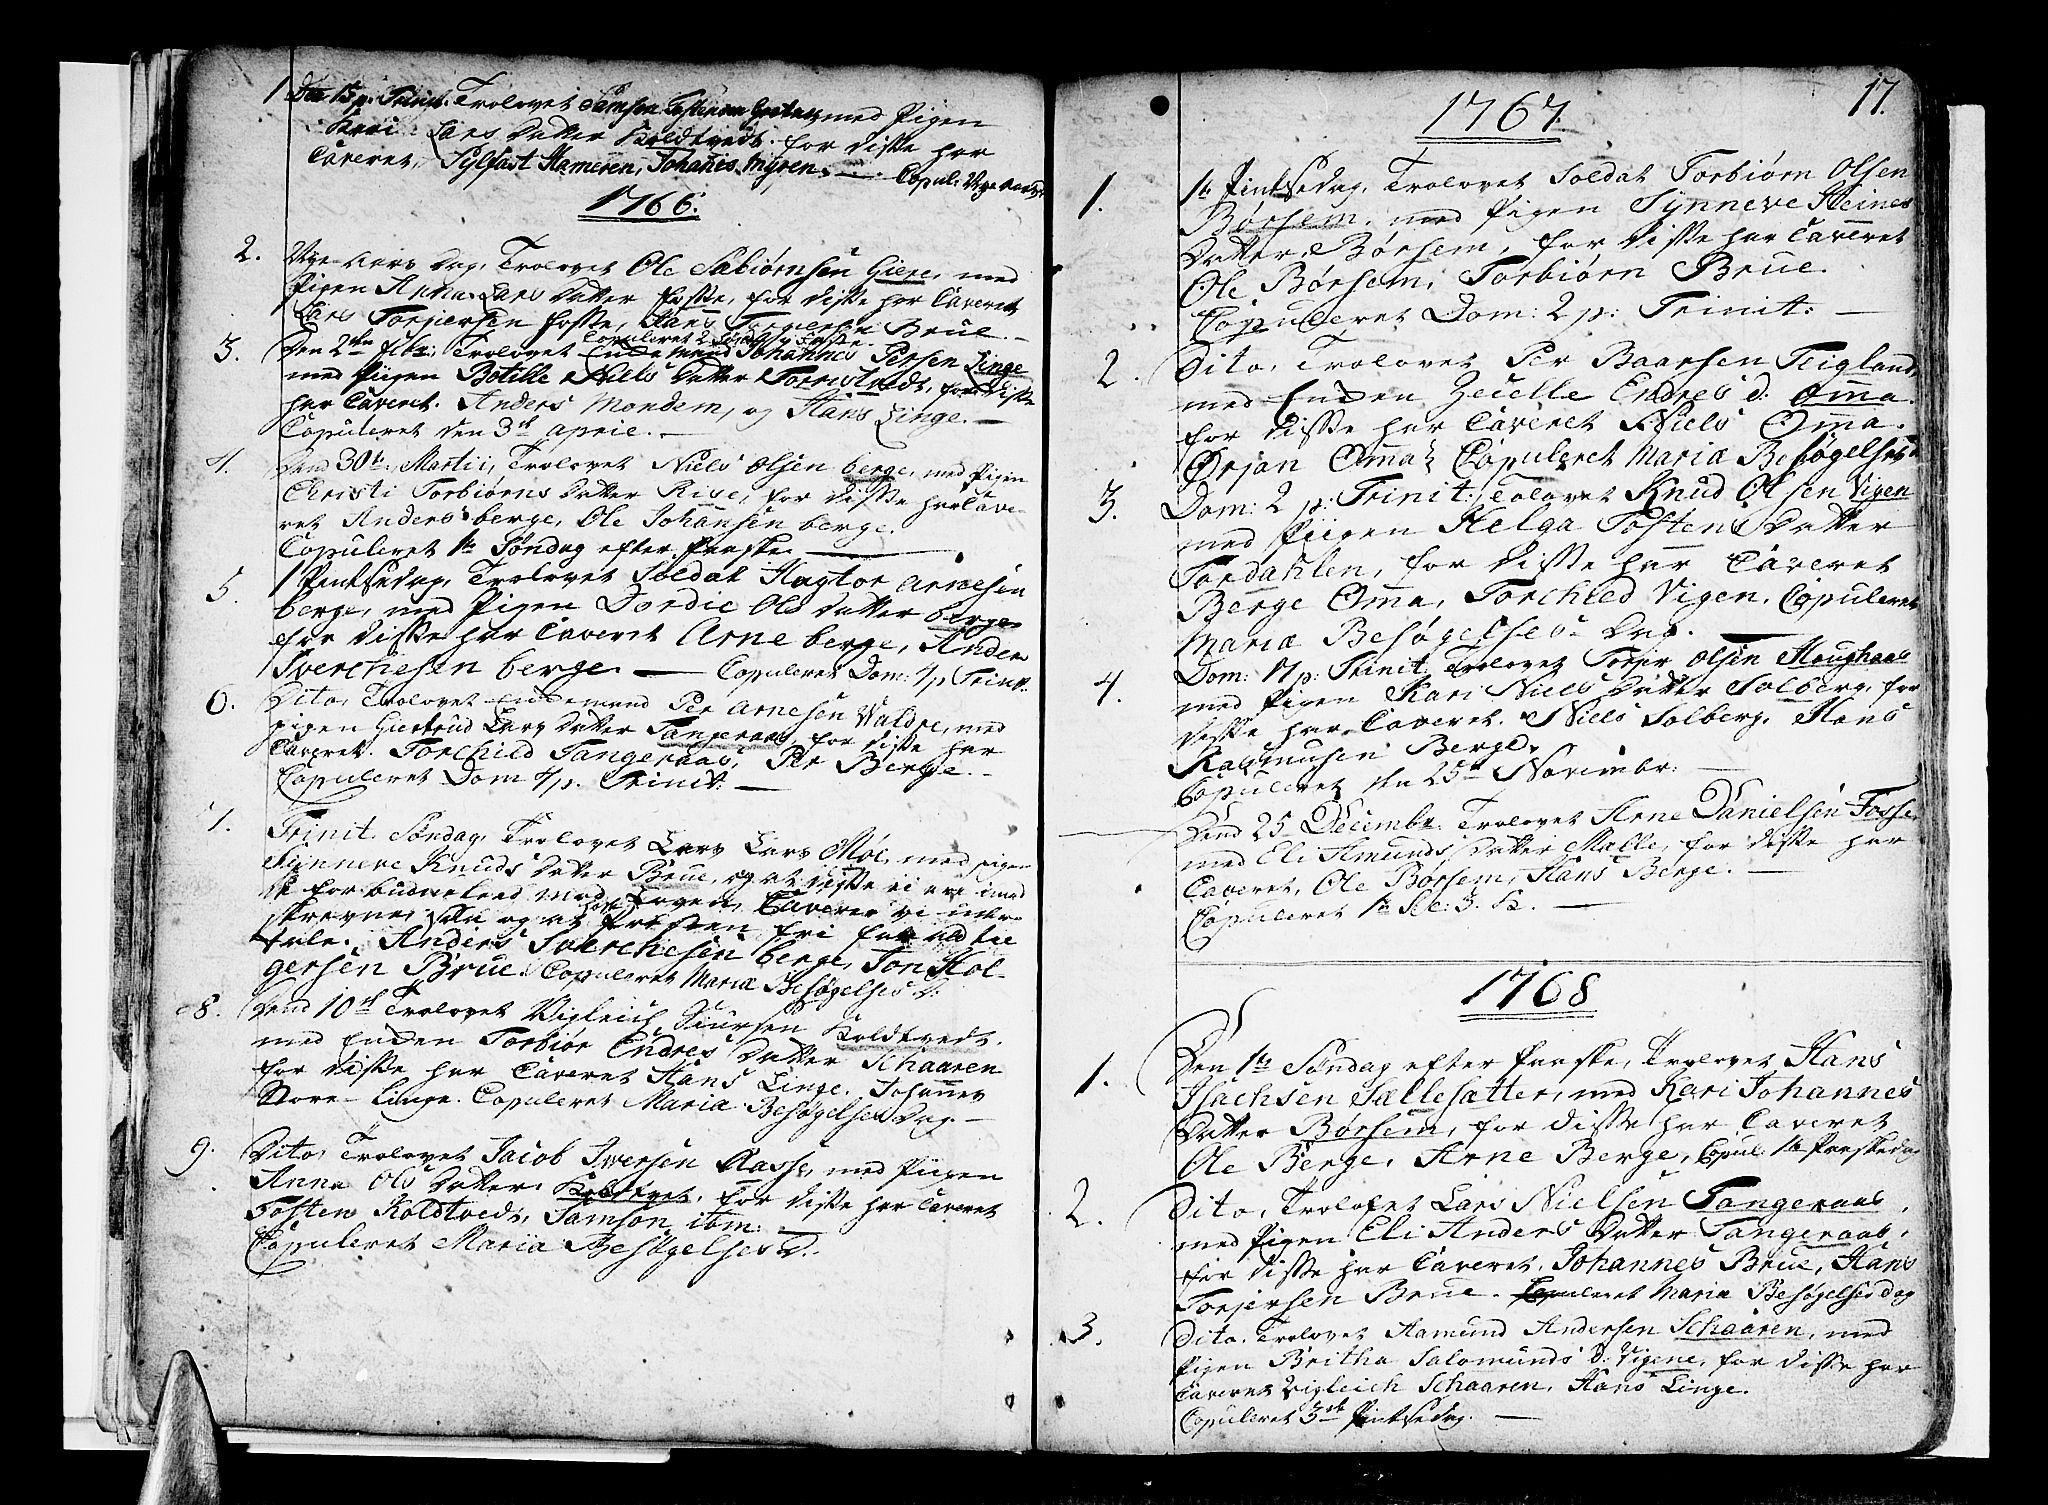 1 Den 15 p. Trinit. Trolovet Samson Tostensen med Pigen
Kari Lars Datter Koldtvedt. for disse har
Caveret, Sylfast Hameren, Johanes Myren. — Copul:
1766.
2. Dag, Trolovet Ole Sabiørnsen Giere, med
Pigen Anna Lars Datter Fosse, for disse har Caveret
Lars Torjersen Fosse, Hans Torjersen Brue. —
3. Den 2den Trolovet Enkemand Johannes Persen Linge
med Piigen Botille Niels Datter, for disse
har Caveret. Anders Mondem, og Hans Linge. —
Copuleret den 3de April. —
4. Dend 30te Martii, Trolovet Niels Olsen berge, med Pigen
Christi Torbiørns Datter Rise, for disse har Cave-
ret Anders berge, Ole Johansen berge.
Copuleret 1te Søndag efter Paaske. —
5. 1 Pintsedag, Trolovet Soldat Hagtor Arnesen
berge, med Pigen Dordie Ols Datter berge
for disse har Caveret Arne berge, Anders
Sverchesen berge. — Copuleret Dom: 4 p Trinit.
6. Dito, Trolovet Enkemand Per Arnesen Valdre, med
pigen Giertrud Lars Datter Tangeraas, for disse har
Caveret. Torchild Tangeraas, Per Berge. —
Copuleret Dom 4 p. Trinit: —
7. Trinit. Søndag, Trolovet Lars Lars Moe, med pigen
Sünneve Knuds Datter Brue, og at disse ei ere imod
de forbudne leed mod Loven, Caverer vi under-
skrevne, og at holde Præsten fri for ald til
tale. Anders Sverchesen berge, Jon Hol-
gersen Brue. Copuleret Mariæ Besøgelses D:
8. Dend 10de Trolovet Vigleich Siursen Koldtvedt.
med Enken Torbiør Endres Datter Schaaren
for disse har Caveret Hans Linge. Johannes
Store-Linge. Copuleret Maria Besøgelses Dag. —
9. Dito, Trolovet Jacob Iversen Aasse, med Piigen
Anna Ols Datter Koldtvet, for disse har Caveret
Tosten Koldtvedt, Samson ibm: —
Copuleret Mariia Besøgelses D.
17.
1767.
1. 1te Pintsedag, Trolovet Soldat Torbiørn Olsen
Børsem, med Pigen Synneve Steines
Datter Børsem, for disse har Caveret
Ole Børsem, Torbiørn Brue.
Copuleret Dom: 2 p: Trinit: —
2. Dito, Trolovet Per Baarsen Teigland,
med Enken Zecelle Endres d. Omma.
for disse har Caveret Niels Omma.
Ørjan Omma. Copuleret Mariæ Besøgelses D
3. Dom: 2 p: Trinit: Trolovet Knud Olsen Vigen
med Piigen Helga Tostens Datter
Tordahlen, for disse har Caveret
Berge Omma, Torchled Vigen. Copuleret
Mariæ Besøgelses Dag.
4. Dom: 17 p: Trinit Trolovet Torjer Olsen Haughaas
med Pigen Kari Niels Datter Solberg, for
disse har Caveret. Niels Solberg, Hans
Rasmusen Berge.
Copuleret den 25de Novembr: —
Dend 25 Decembr. Trolovet Arne Danielsen Fosse,
med Eli Amunds Datter Malle, for disse har
Caveret, Ole Børsem, Hans Berge. —
Copuleret 1te
1768
1. Den 1te Søndag efter Paaske, Trolovet Hans
Isachsen Sællesætter, med Kari Johannes
Datter Børsem, for disse har Caveret
Ole Berge, Arne Berge, Copul 1te Paaskedag
2. Dito, Trolovet Lars Nielsen Tangeraas,
med Pigen Eli Anders Datter Tangeraas,
for disse har Caveret. Johannes Brue, Hans
Torjersen Brue. Copuleret Mariæ Besøgelses dag
3. Dito. Trolovet Aamund Andersen Schaaren, med
Pigen Britha Salomunds D: Vigene, for disse har
Caveret Vigleich Schaaren, Hans Linge.
Copuleret 3de Pintsedag. —